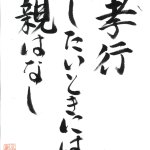 孝行
したいときには
親はなし